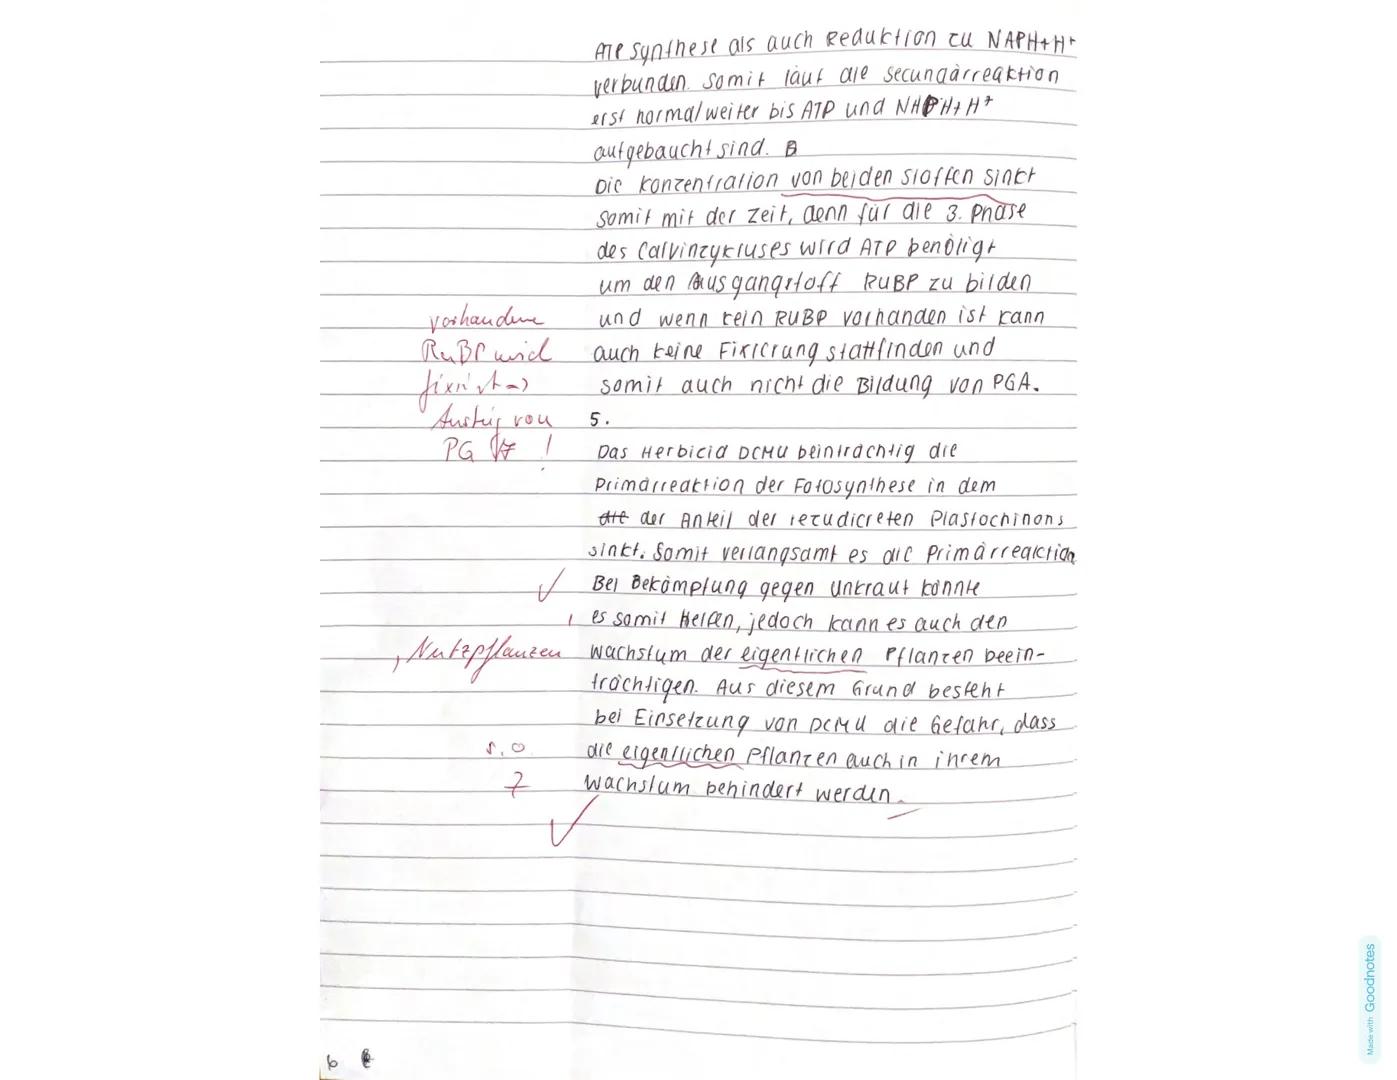 ATP synthese als auch Reduktion zu NAPH+H+
verbunden. Somit läuf die Secundärreaktion
erst normal weiter bis ATP und NAPH+H+
aufgebaucht sind.
Die Konzentration von beiden stoffen sinkt
somit mit der Zeit, denn für die 3. Phase
des Calvinzykluses wird ATP benötigt
um den Ausgangstoff RuBP zu bilden
vorhandene
und wenn kein RUBP vorhanden ist kann
RuBP wird
auch keine Fixierung stattfinden und
fixiert =>
somit auch nicht die Bildung von PGA.
Anstieg von
5.
PG !
Das Herbicid DCMU beinträchtig die
Primärreaktion der Fotosynthese in dem
die der Anteil der Plastochinons
sinkt. Somit verlangsamt es die Primärreaktion
✓ Bei Bekämpfung gegen Unkraut könnte
es somit Helfen, jedoch kann es auch den
, Nutzpflanzen
Wachstum der eigentlichen Pflanzen beein-
trächtigen. Aus diesem Grund besteht
bei Einsetzung von DCMU die Gefahr, dass
s.o.
die eigentlichen Pflanzen auch in ihrem
7
Wachstum behindert werden.
✓
6
Made with Goodnotes